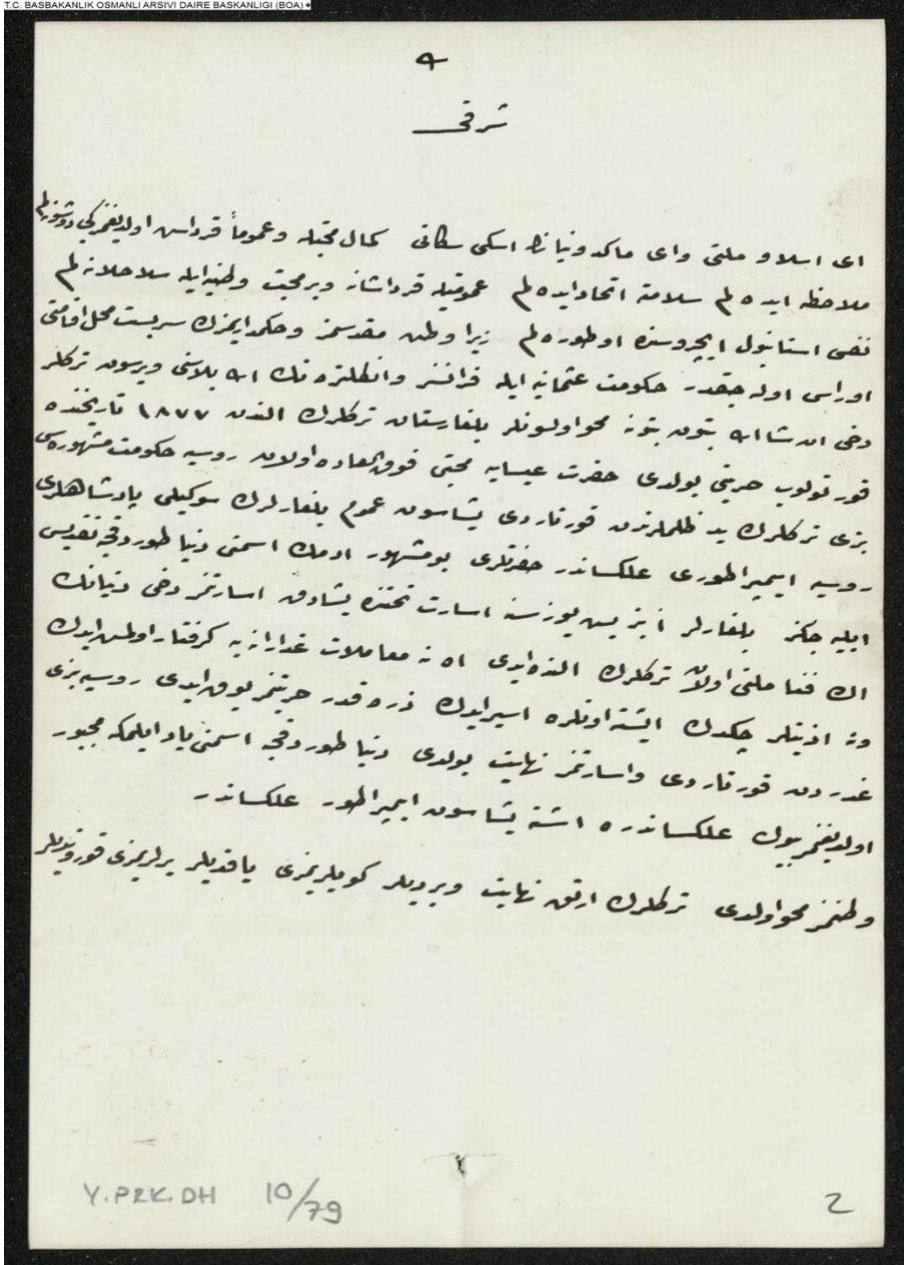 T.C. BASBAKANLIK OSMANLI ARSIVI DAIRE BASKANLIGI (BOA)
٩
شرقی
ای اسلاو ملتی وای ماكدونیانك اسكی سكانی كمال محبتله وعموماً قرداش اولدیغمز كبی دوشونه لم
ملاحظه ایده لم سلامته اتحاد ایده لم عمومیتله قرداشانه وبر محبت وطنیه ایله سلاحلانه لم
نفس استانبول ایچروسنده اوطوره لم زیرا وطن مقدسمز وحكمدایمزك سربست محل اقامتی
اوراسی اوله جقدر حكومت عثمانیه ایله فرانسز وانكلتره نك الله بلاسنی ویرسون تركلر
دخی ان شاالله بتون بتون محو اولسونلر بلغارستان تركلرك الندن ١٨٧٧ تاریخنده
قورتولوب حریتی بولدی حضرت عیسایه محبتی فوق العاده اولان روسیه حكومت مشهوره سی
بزی تركلرك ید ظلملرندن قورتاردی یشاسون عموم بلغارلرك سوكیلی پادشاهلری
روسیه ایمپراطوری علكساندر حضرتلری بو مشهور ادمك اسمنی دنیا طوردقجه تقدیس
ایلیه جكز بلغارلر ایز بش یوز سنه اسارت تحتنده یشادق اسارتمز دخی دنیانك
اك فنا ملتی اولان تركلرك النده ایدی اه نه معاملات غدارانه یه گرفتار اولمش ایدك
ونه اذیتلر چكدك ایشته اونلره اسیر ایدك ذره قدر حریتمز یوق ایدی روسیه بزی
غدردن قورتاردی واسارتمز نهایت بولدی دنیا طوردقجه اسمنی یاد ایلمكه مجبور
اولدیغمز بیوك علكساندره اشته یشاسون ایمپراطور علكساندر
وطنمز محو اولدی تركلرك ارتق نهایت ویردیلر كویلریمزی یاقدیلر یرلریمزی قوروتدیلر
Y.PRK.DH 10/79
2